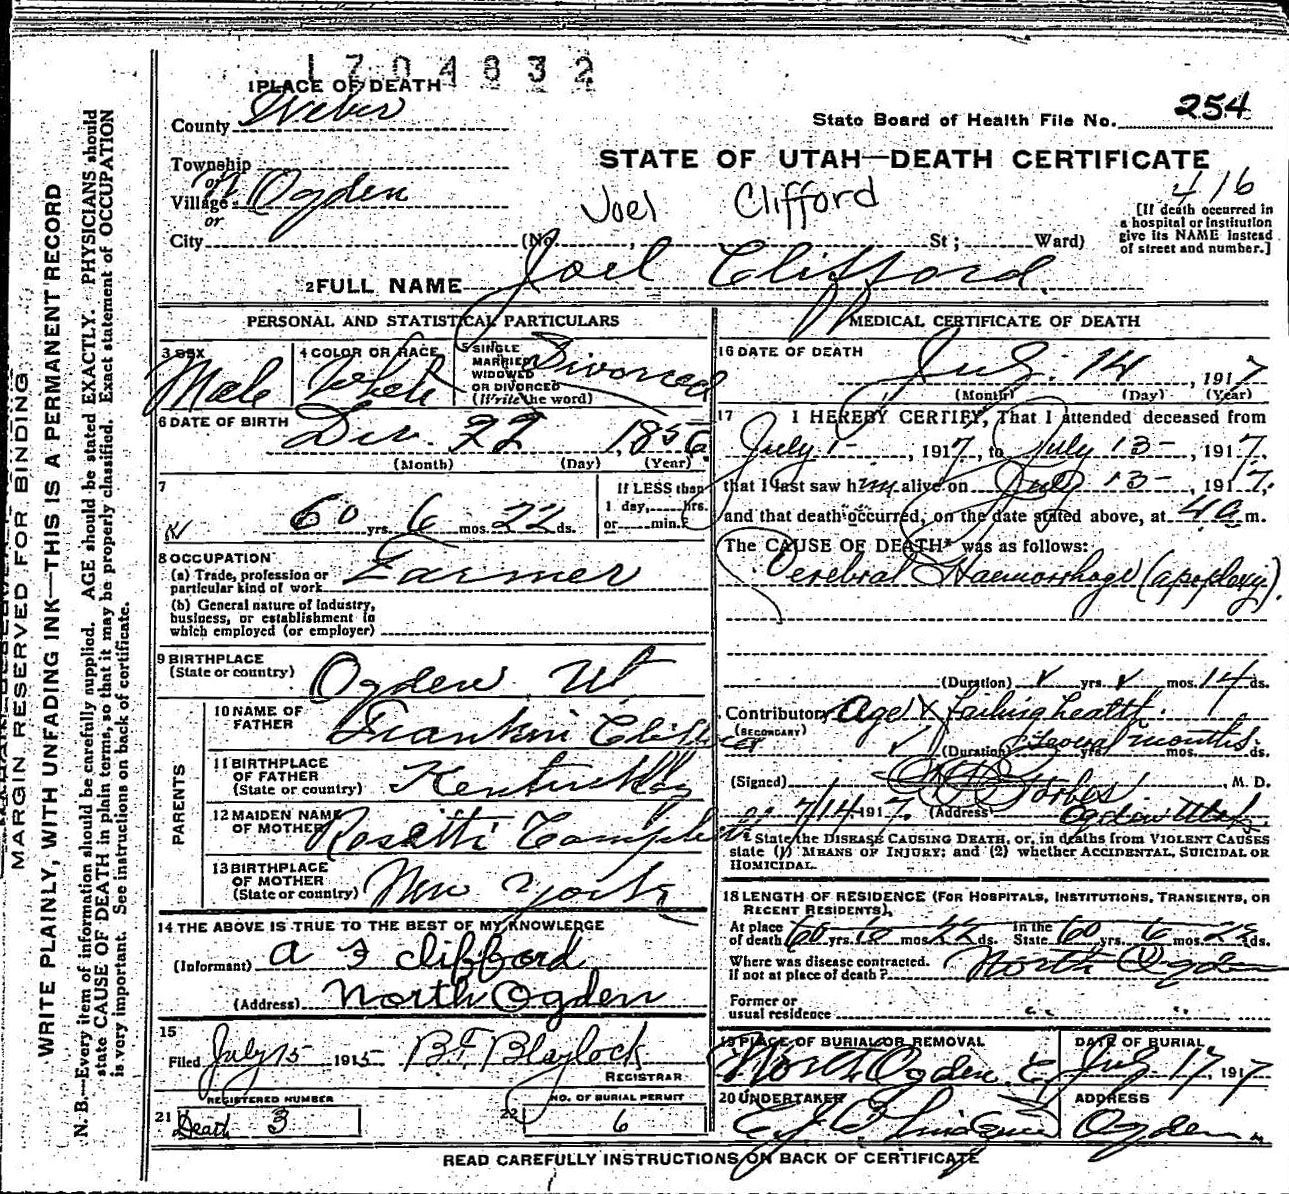 1704832
1 PLACE OF DEATH
County Weber
State Board of Health File No. 254
STATE OF UTAH—DEATH CERTIFICATE
Township
or
Village N Ogden
or
Joel Clifford
416
[If death occurred in
a hospital or institution
give its NAME instead
of street and number.]
City (No. , St; Ward)
2 FULL NAME Joel Clifford.
PERSONAL AND STATISTICAL PARTICULARS
3 SEX Male
4 COLOR OR RACE White
5 SINGLE
MARRIED
WIDOWED
OR DIVORCED
(Write the word)
Divorced
6 DATE OF BIRTH Dec. 22 1856
(Month) (Day) (Year)
7
60 yrs. 6 mos. 22 ds.
If LESS than
1 day, hrs.
or min.?
8 OCCUPATION
(a) Trade, profession or
particular kind of work Farmer
(b) General nature of industry,
business, or establishment in
which employed (or employer)
9 BIRTHPLACE
(State or country) Ogden Ut
PARENTS
10 NAME OF
FATHER Franklin Clifford
11 BIRTHPLACE
OF FATHER
(State or country) Kentucky
12 MAIDEN NAME
OF MOTHER Rosetti Campbell
13 BIRTHPLACE
OF MOTHER
(State or country) New York
14 THE ABOVE IS TRUE TO THE BEST OF MY KNOWLEDGE
(Informant) A F Clifford
(Address) North Ogden
15
Filed July 15 1915 B F Blaylock
REGISTRAR
REGISTERED NUMBER
21 Death 3
NO. OF BURIAL PERMIT
22 6
MEDICAL CERTIFICATE OF DEATH
16 DATE OF DEATH
July 14, 1917
(Month) (Day) (Year)
17 I HEREBY CERTIFY, That I attended deceased from
July 1-, 1917, to July 13-, 1917.
that I last saw him alive on July 13-, 1917,
and that death occurred, on the date stated above, at 4 a m.
The CAUSE OF DEATH* was as follows:
Cerebral Haemorrhage (apoplexy).
(Duration) yrs. mos. 14 ds.
Contributory Age & failing health.
(SECONDARY)
(Duration) Several months yrs. mos. ds.
(Signed) Forbes, M. D.
7/14 1917. (Address) Ogden Utah.
* State the DISEASE CAUSING DEATH, or, in deaths from VIOLENT CAUSES
state (1) MEANS OF INJURY; and (2) whether ACCIDENTAL, SUICIDAL OR
HOMICIDAL.
18 LENGTH OF RESIDENCE (FOR HOSPITALS, INSTITUTIONS, TRANSIENTS, OR
RECENT RESIDENTS).
At place In the
of death 60 yrs. mos. 22 ds. State 60 yrs. 6 mos. ds.
Where was disease contracted.
if not at place of death? North Ogden
Former or
usual residence " "
19 PLACE OF BURIAL OR REMOVAL
North Ogden
DATE OF BURIAL
July 17, 1917
20 UNDERTAKER
ADDRESS
Ogden
READ CAREFULLY INSTRUCTIONS ON BACK OF CERTIFICATE
MARGIN RESERVED FOR BINDING
WRITE PLAINLY, WITH UNFADING INK—THIS IS A PERMANENT RECORD
N. B.—Every item of information should be carefully supplied. AGE should be stated EXACTLY. PHYSICIANS should
state CAUSE OF DEATH in plain terms, so that it may be properly classified. Exact statement of OCCUPATION
is very important. See instructions on back of certificate.